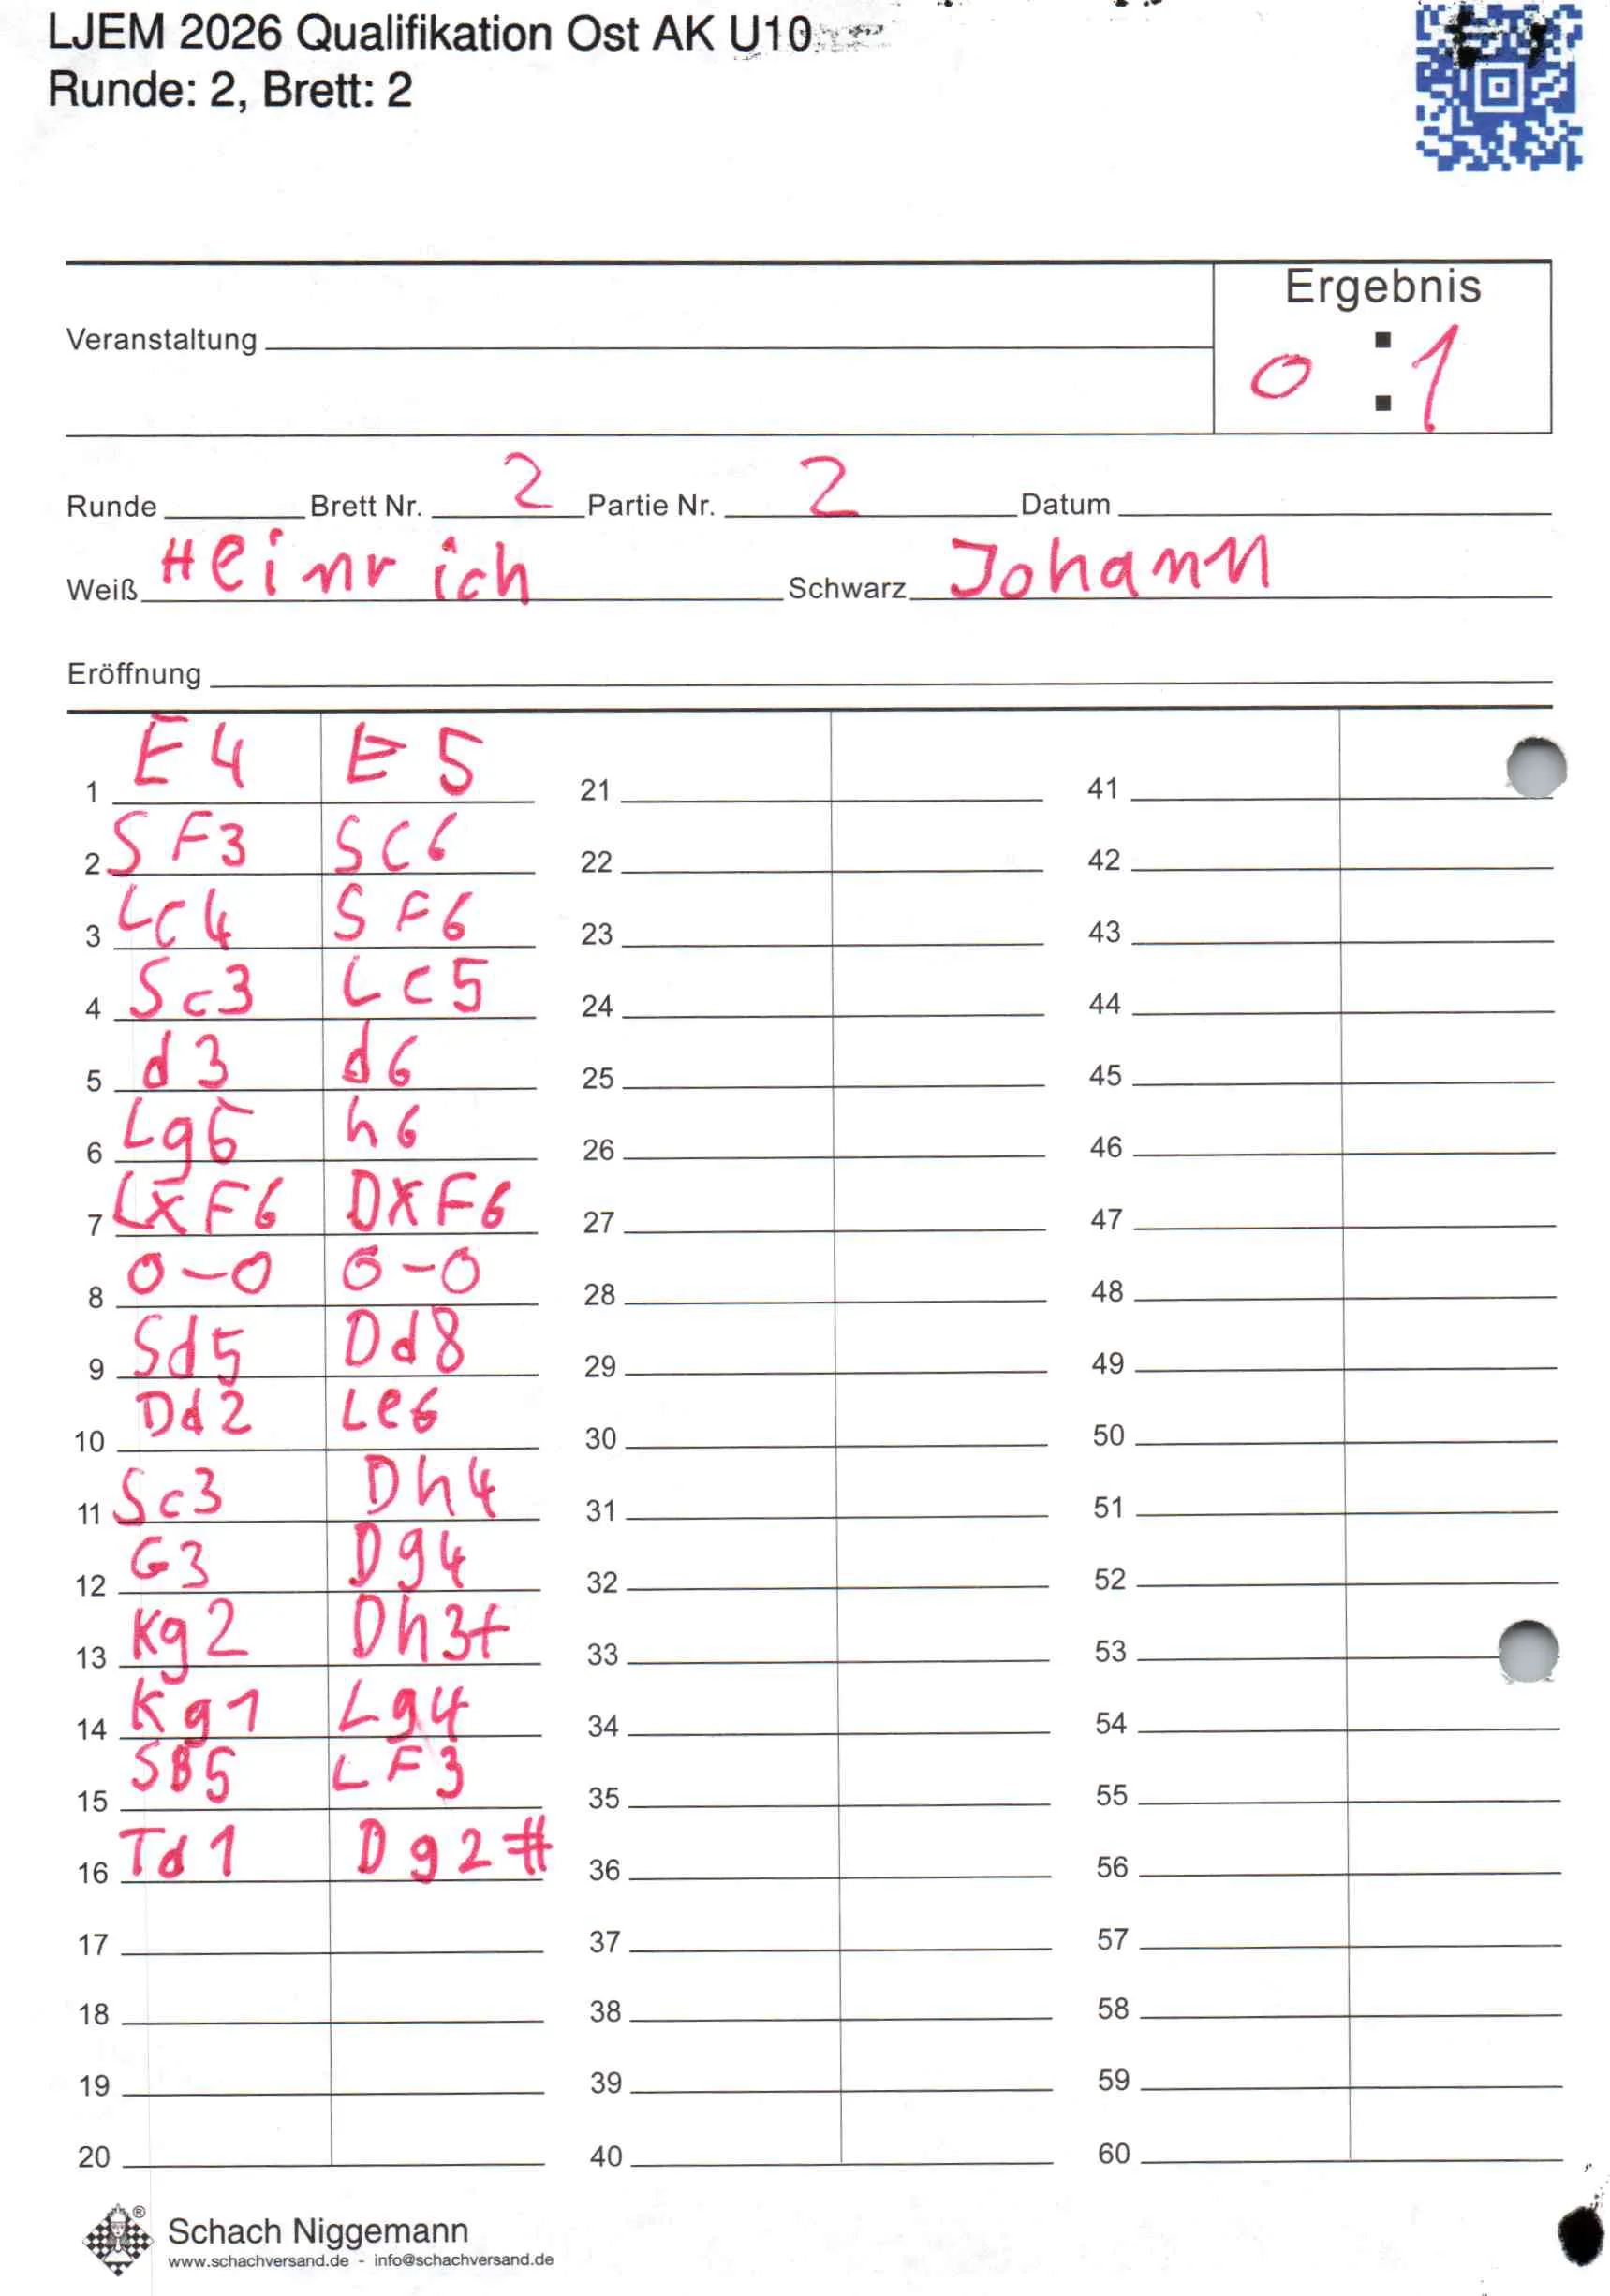 LJEM 2026 Qualifikation Ost AK U10
Runde: 2, Brett: 2
Ergebnis
0 : 1
Veranstaltung
Runde Brett Nr. 2 Partie Nr. 2 Datum
Weiß Heinrich Schwarz Johann
Eröffnung
1 E4 E5 21 41
2 SF3 SC6 22 42
3 LC4 SF6 23 43
4 Sc3 Lc5 24 44
5 d3 d6 25 45
6 Lg5 h6 26 46
7 LXF6 DXF6 27 47
8 0-0 0-0 28 48
9 Sd5 Dd8 29 49
10 Dd2 Le6 30 50
11 Sc3 Dh4 31 51
12 G3 Dg4 32 52
13 Kg2 Dh3+ 33 53
14 Kg1 Lg4 34 54
15 SB5 LF3 35 55
16 Td1 Dg2# 36 56
17 37 57
18 38 58
19 39 59
20 40 60
® Schach Niggemann
www.schachversand.de - info@schachversand.de